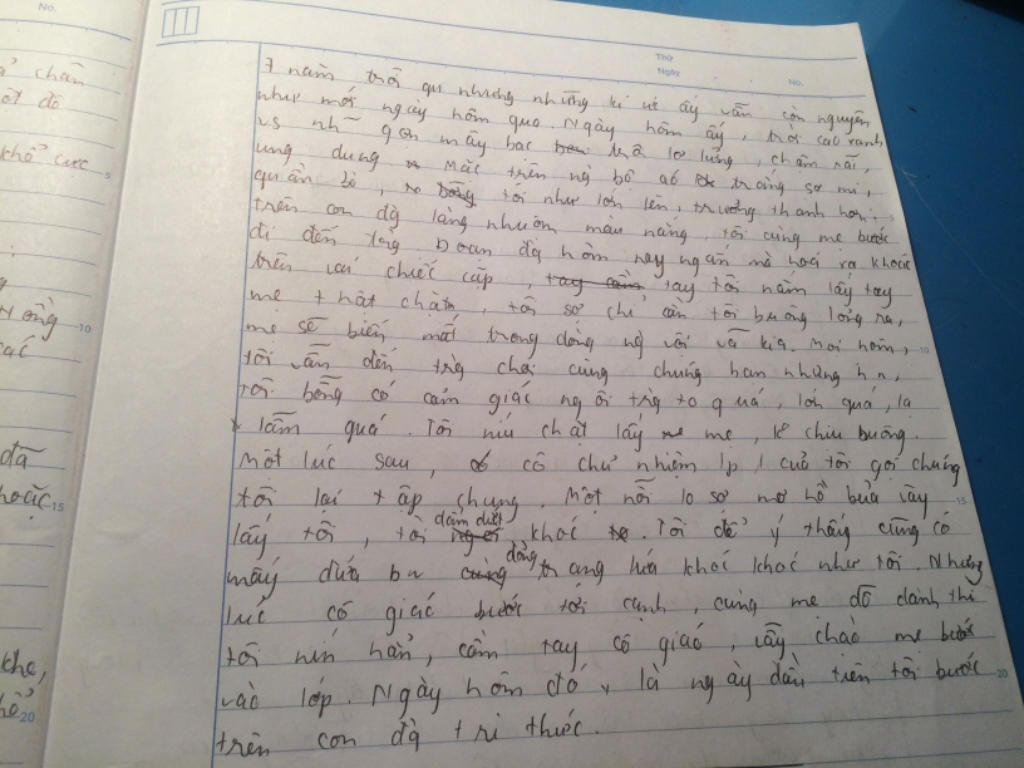 No.
Thứ
Ngày No.
ả chân
ột đô
khổ cực 5
Nông 10
các
đã
hoặc 15
khe,
hổ 20
7 năm trôi qu nhưng những kí ức ấy vẫn còn nguyên
như mới ngày hôm qua. Ngày hôm ấy, trời cao xanh
vs nh~ gọn mây bạc khẽ lơ lửng, chậm rãi,
ung dung. Mặc trên ng bộ aó trắng sơ mi,
quần bò, tôi như lớn lên, trưởng thành hơn. 5
trên con đg làng nhuộm màu nắng, tôi cùng mẹ bước
đi đến trg. Đoạn đg hôm nay ngắn mà hoá ra khoác
trên vai chiếc cặp, tay tôi nắm lấy tay
mẹ thật chặt, tôi sợ chỉ cần tôi buông lỏng ra,
mẹ sẽ biến mất trong dòng ng vội vã kia. Mọi hôm, 10
tôi vẫn đến trg chơi cùng chúng bạn nhưng h n,
tôi bỗng có cảm giác ng ôi trg to quá, lớn quá, lạ
lẫm quá. Tôi níu chặt lấy mẹ, k chịu buông.
Một lúc sau, cô chủ nhiệm lp 1 cuả tôi gọi chúng
tôi lại tập chung. Một nỗi lo sợ mơ hồ buả vây 15
lấy tôi, tôi dẫm dứt khóc. Tôi để ý thấy cũng có
mấy đứa bn đồng trang lứa khóc khóc như tôi. Nhưng
lúc cô giaó bước tới cạnh, cùng mẹ dỗ dành thì
tôi nín hẳn, cầm tay cô giaó, vẫy chaò mẹ bước
vaò lớp. Ngày hôm đó, là ngày đầu tiên tôi bước 20
trên con đg tri thức.